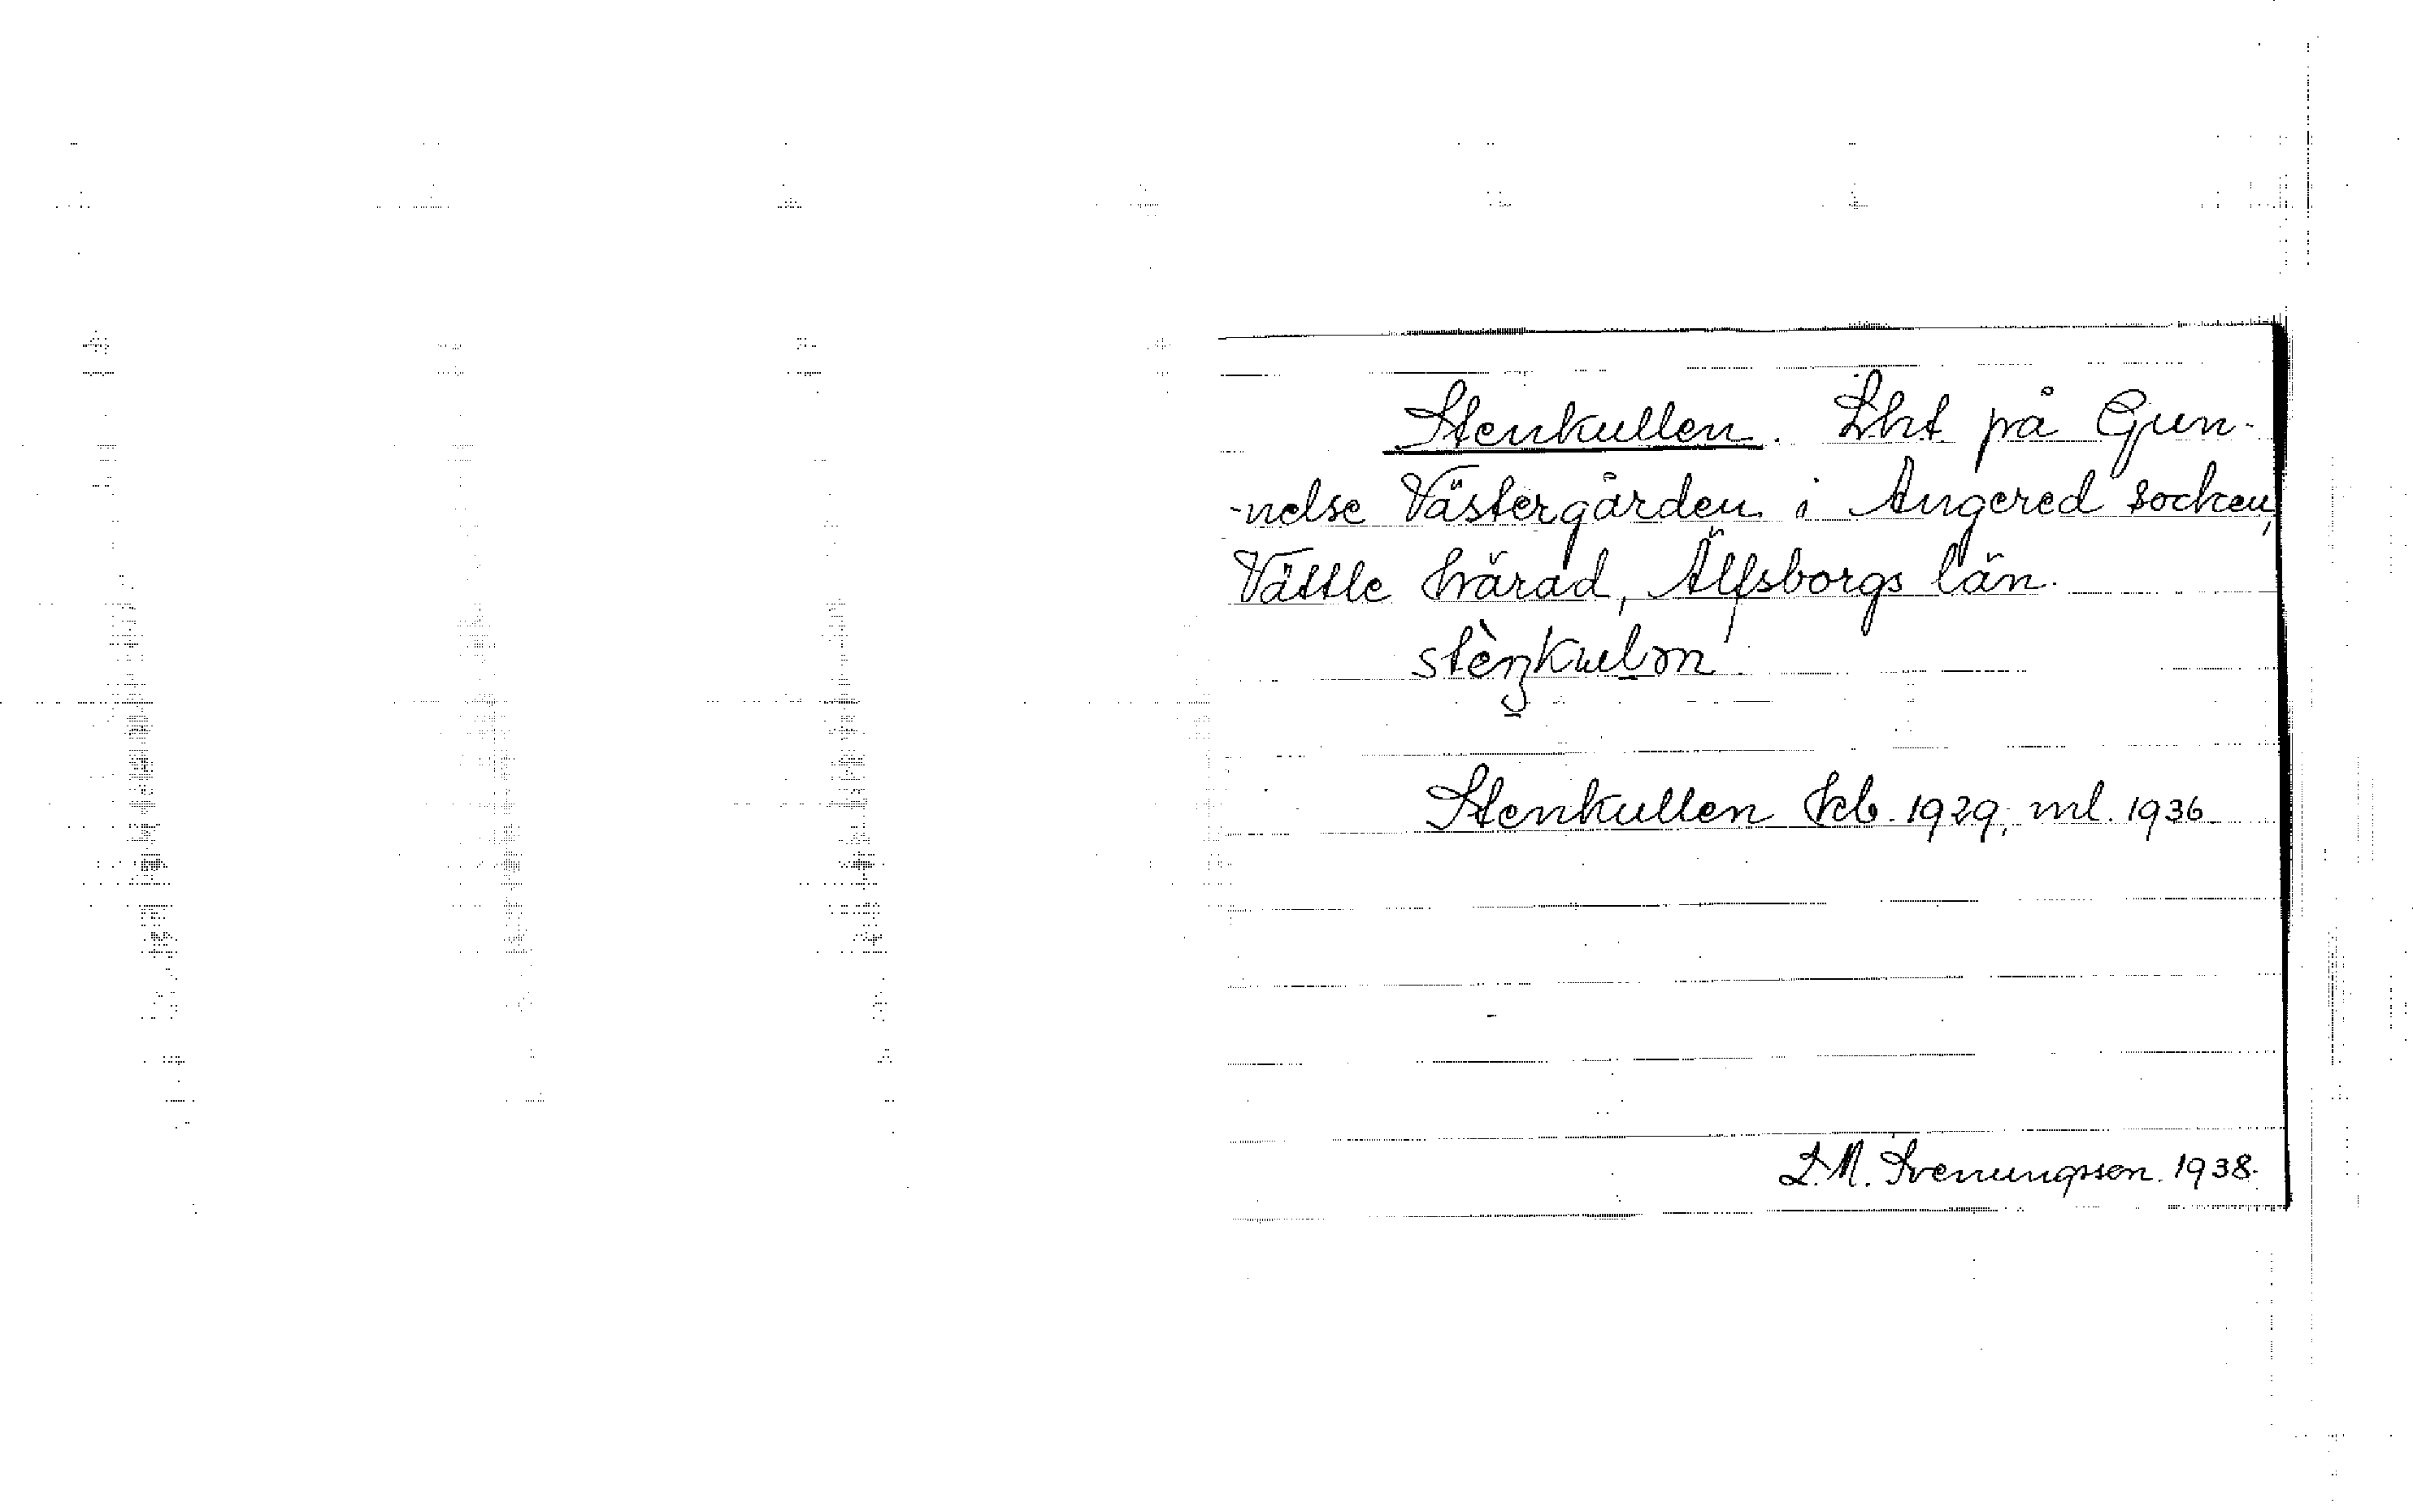 Stenkullen. Lht på Gun-
-nelse Västergården i Angered socken,
Vättle härad, Älfsborgs län.
Stenkullen kb. 1929; ml. 1936.
L.M. Svenungsson. 1938.